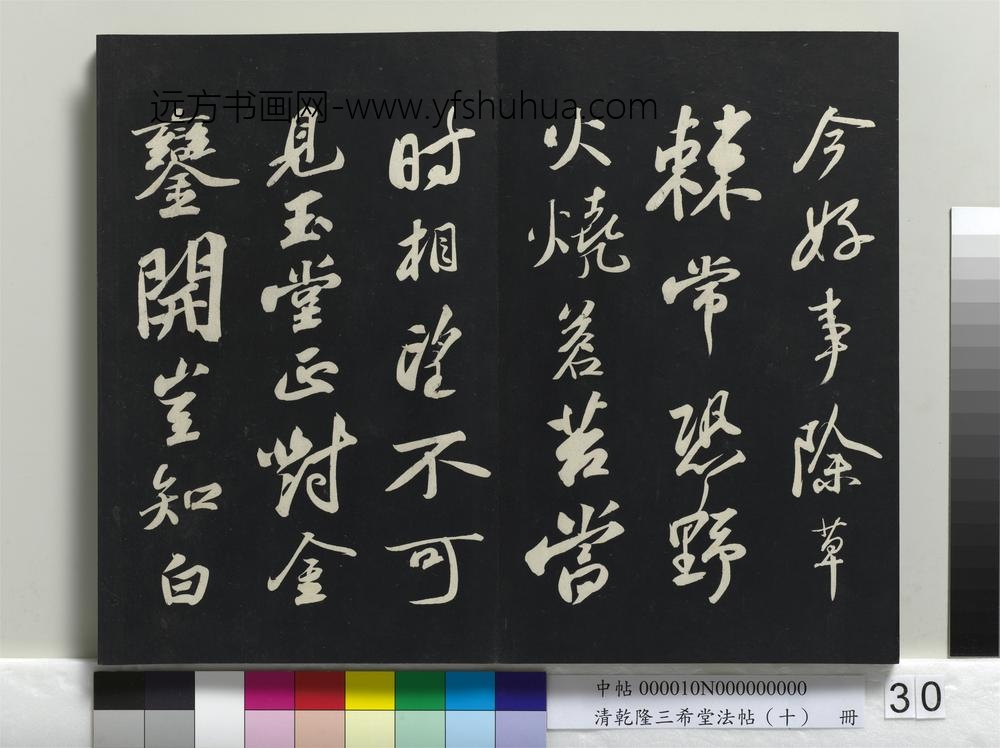 远方书画网-www.yfshuhua.com
今好事除草
棘常恐野
火燒蒼苔當
時相望不可
見玉堂正對金
鑾開豈知白
中帖 000010N000000000
清乾隆三希堂法帖（十） 冊
30